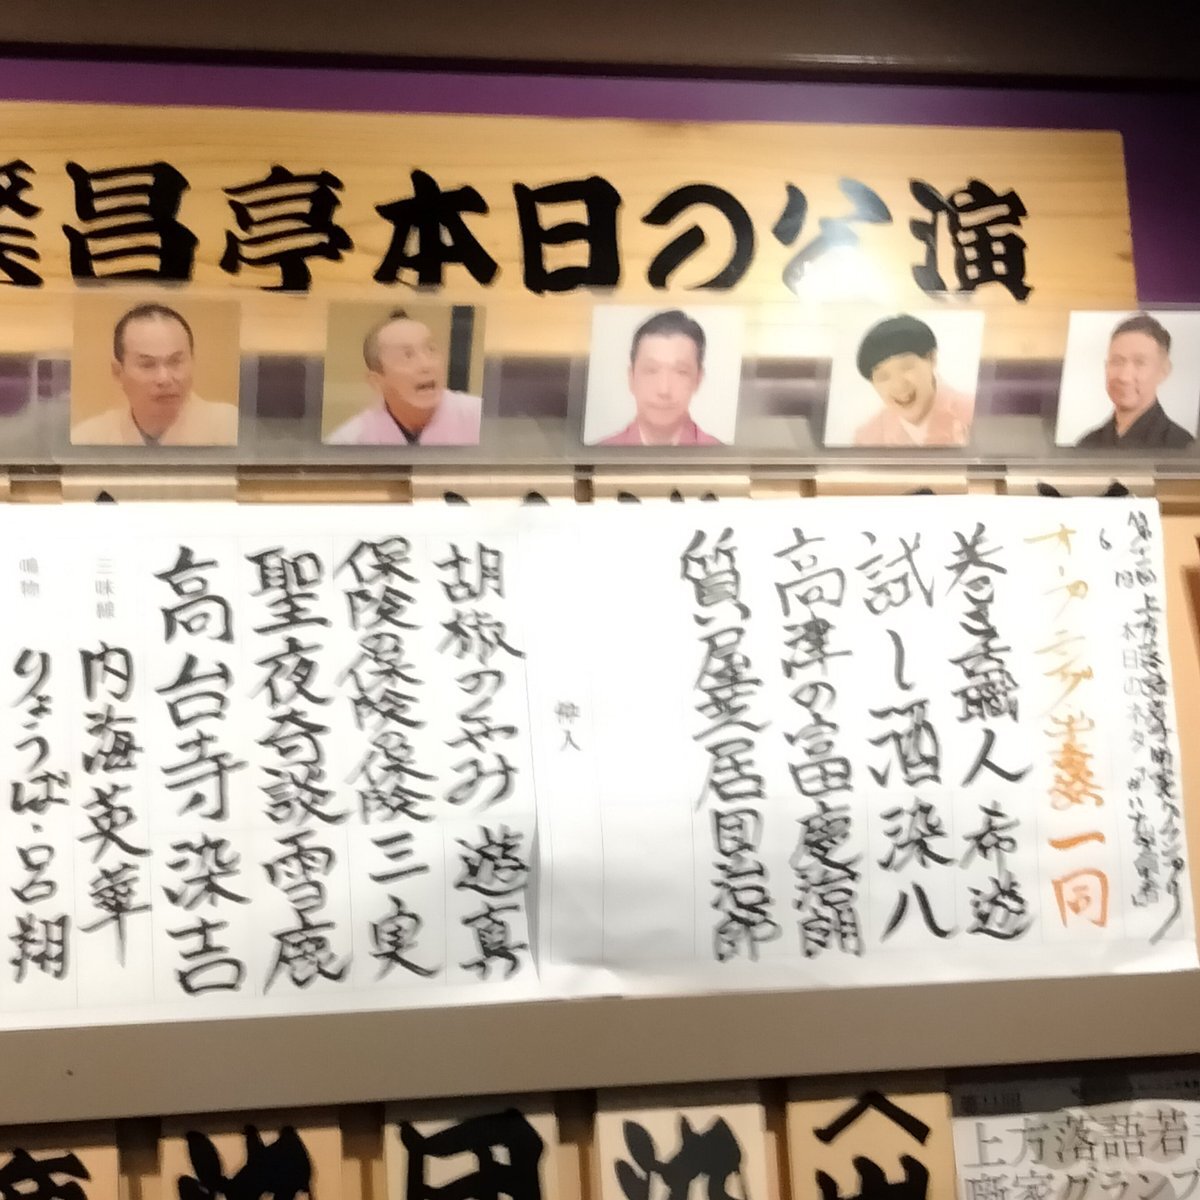 繁昌亭本日の公演
第十一回上方落語若手噺家グランプリ
6
本日のネタ
オープニング 出演者一同
巻き舌職人 希遊
試し酒 染八
高津の富 慶治朗
質屋芝居 団治郎
仲入
胡椒のくやみ 遊真
保険保険保険 三実
聖夜奇談 雪鹿
高台寺 染吉
三味線 内海英華
鳴物 りょうば・呂翔
上方落語若
噺家グランプ